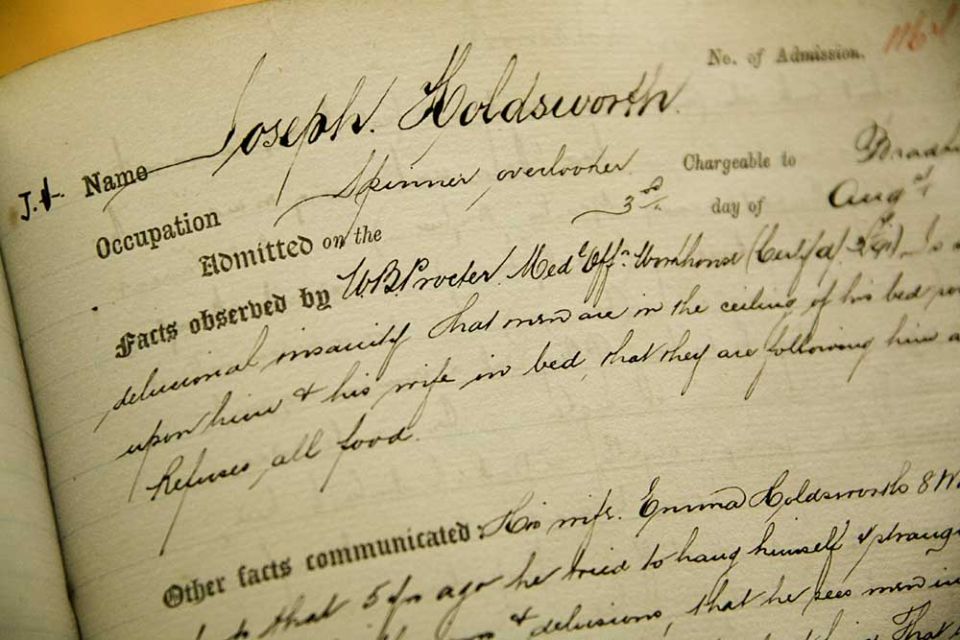 No. of Admission.
J.H. Name Joseph. Holdsworth.
Occupation Spinner, overlooker Chargeable to
Admitted on the 3rd day of Augst
Facts observed by W.B. Procter Med. Offr. Workhouse (Certfd) Is
delusional insanity that men are in the ceiling of his bed
upon him & his wife in bed, that they are following him
Refuses all food.
Other facts communicated. His wife. Emma Holdsworth 8
that 5 yrs ago he tried to hang himself &
& delusions, that he sees men in
That